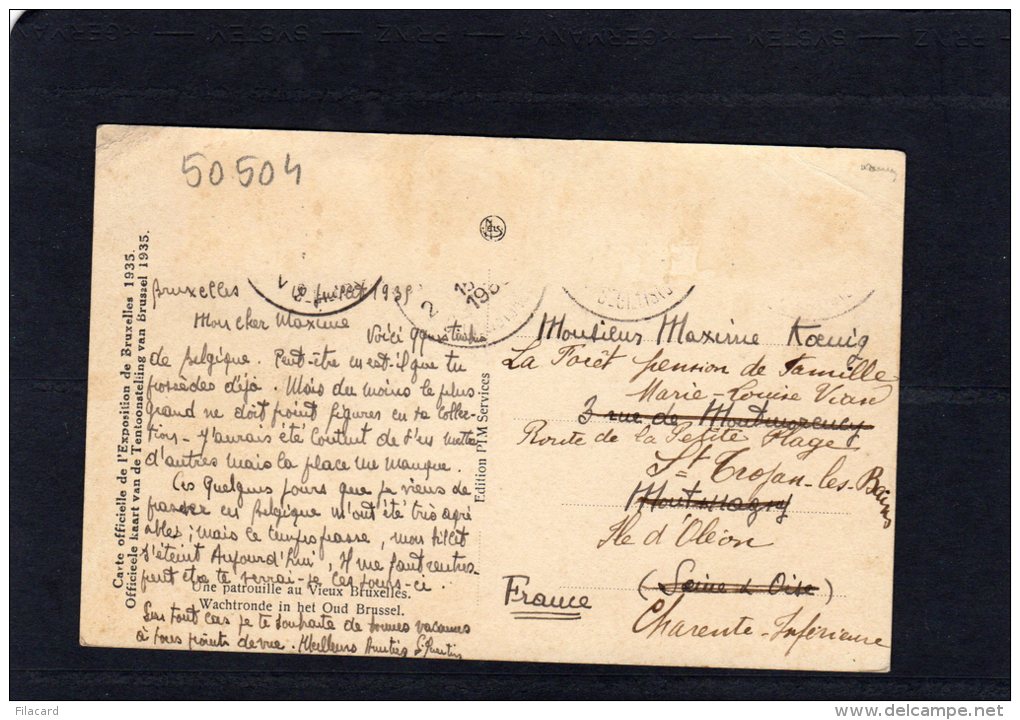 50504
Carte officielle de l'Exposition de Bruxelles 1935.
Officieele kaart van de Tentoonstelling van Brussel 1935.
Bruxelles Juillet 1935
Mon cher Maxime
Voici quatre timbres
de Belgique. Peut-être en est-il que tu
possèdes déjà. Mais du moins le plus
grand ne doit point figurer en ta collec-
tion - J'aurais été content de t'en mettre
d'autres mais la place me manque.
Ces quelques jours que je viens de
passer en Belgique m'ont été très agré
ables; mais le temps passe, mon billet
s'éteint Aujourd'hui, Il me faut rentrer
peut être te verrai-je ces jours-ci.
Une patrouille au Vieux Bruxelles.
Wachtronde in het Oud Brussel.
En tout cas je te souhaite de bonnes vacances
à tous points de vue. Meilleures Amitiés
Edition PIM Services
Monsieur Maxime Kœnig
La Forêt pension de famille
Marie-Louise Vian
3 rue de Montmorency
Route de la Petite Plage
St Trojan-les-Bains
Montmagny
Ile d'Oléon
(Seine & Oise).
France
Charente-Inférieure
Filacard
delcampe.net